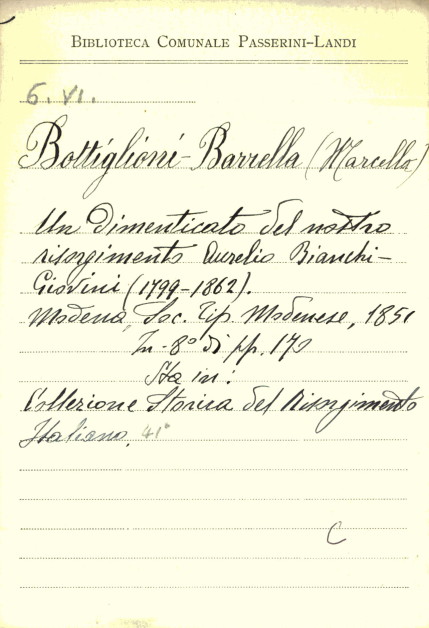 BIBLIOTECA COMUNALE PASSERINI-LANDI
6. VI.
Bottiglioni-Barrella (Marcella)
Un dimenticato del nostro
risorgimento Aurelio Bianchi-
Giovini (1799-1862).
Modena, Soc. Tip. Modenese, 1951
In-8° di pp. 170
Sta in:
Collezione Storica del Risorgimento
Italiano. 41°
C